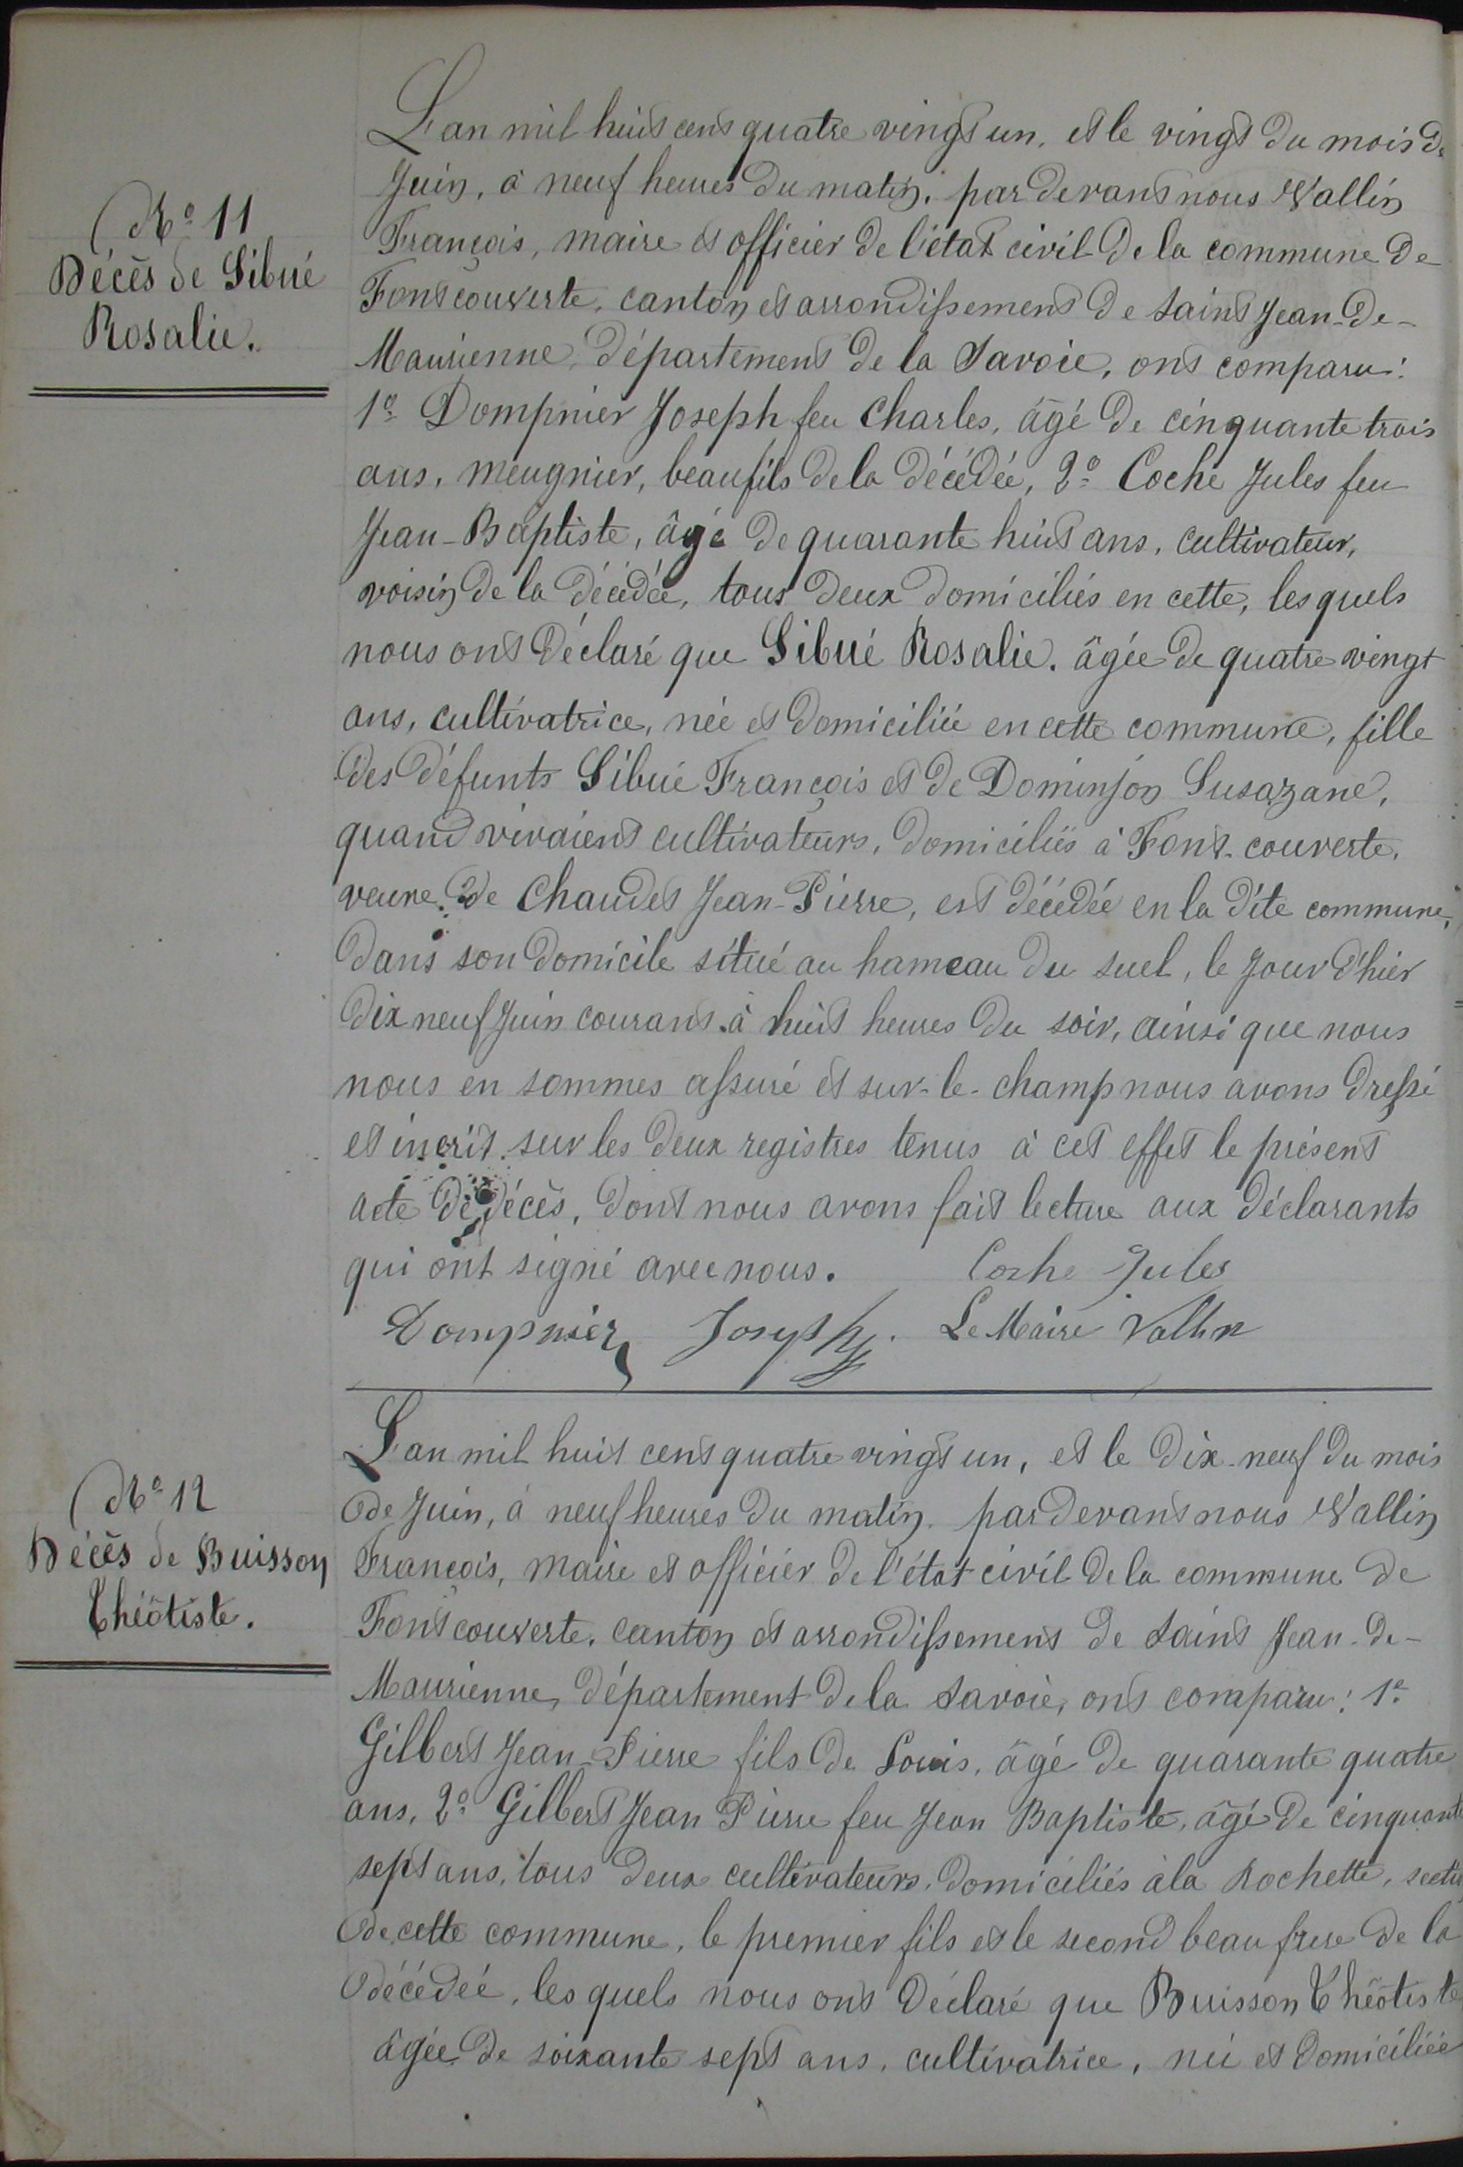 L'an mil huit cent quatre vingt un, et le vingt du mois de
Juin, à neuf heures du matin, par devant nous Vallin
N° 11
François, maire et officier de l'état civil de la commune de
Décès de Sibué
Fontcouverte, canton et arrondissement de Saint Jean-de-
Rosalie.
Maurienne, département de la Savoie, ont comparu:
1° Dompnier Joseph feu Charles, âgé de cinquante trois
ans, meugnier, beau fils de la décédée, 2° Coche Jules feu
Jean-Baptiste, âgé de quarante huit ans, cultivateur,
voisin de la décédée, tous deux domiciliés en cette, les quels
nous ont déclaré que Sibué Rosalie, âgée de quatre vingt
ans, cultivatrice, née et domiciliée en cette commune, fille
des défunts Sibué François et de Dominjon Susazane,
quand vivaient cultivateurs, domiciliés à Font-couverte,
veuve de Chaudet Jean-Pierre, est décédée en la dite commune,
dans son domicile situé au hameau du suel, le jour d'hier
dix neuf Juin courant à huit heures du soir, ainsi que nous
nous en sommes assuré et sur-le-champ nous avons dressé
et incrit sur les deux registres tenus à cet effet le présent
acte de décès, dont nous avons fait lecture aux déclarants
qui ont signé avec nous. Coche Jules
Dompnier Joseph. Le Maire Vallin
L'an mil huit cent quatre vingt un, et le dix-neuf du mois
N° 12
de Juin, à neuf heures du matin, par devant nous Vallin
Décès de Buisson
François, maire et officier de l'état civil de la commune de
Théotiste.
Fontcouverte, canton et arrondissement de Saint Jean-de-
Maurienne, département de la Savoie, ont comparu: 1°
Gilbert Jean-Pierre fils de Louis, âgé de quarante quatre
ans, 2° Gilbert Jean Pierre feu Jean Baptiste, âgé de cinquante
sept ans, tous deux cultivateurs, domiciliés à la Rochette,
de cette commune, le premier fils et le second beau frere de la
décédée, les quels nous ont déclaré que Buisson Théotiste
âgée de soixante sept ans, cultivatrice, née et domiciliée